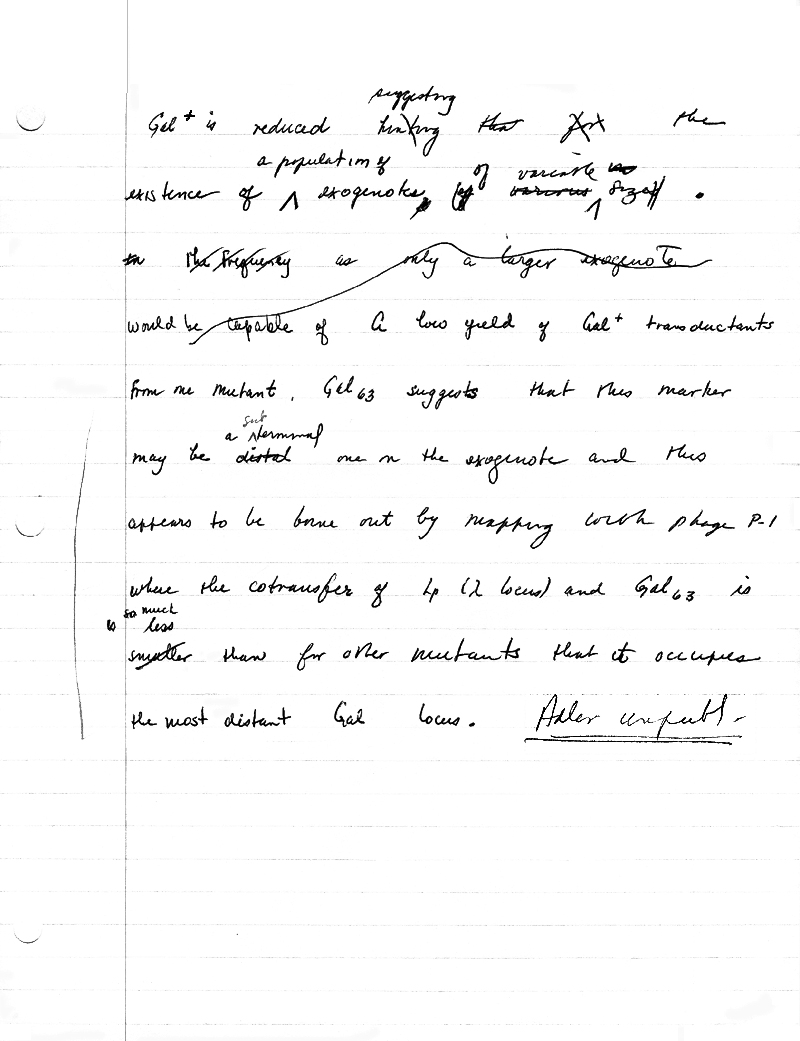 suggesting
Gal + is reduced hinting that the
a population of of variable
existence of ^ exogenotes, various ^ size .
in the frequency as only a larger exogenote
would be capable of A low yield of Gal+ transductants
from one mutant, Gal 63 suggests that this marker
sub
a terminal
may be distal one on the exogenote and this
appears to be borne out by mapping with phage P-1
where the cotransfer of Lp (λ locus) and Gal 63 is
so much
is less
smaller than for other mutants that it occupies
the most distant Gal locus.  Adler unpubl.